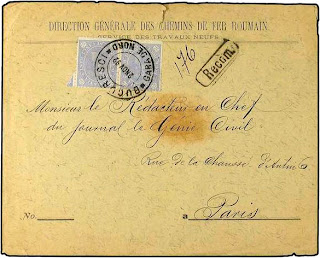 DIRECTION GÉNÉRALE DES CHEMINS DE FER ROUMAIN
SERVICE DES TRAVAUX NEUFS
BUCURESCI GARA DE NORD
176
Recom.
Monsieur le Rédacteur en Chef
du journal le Génie Civil
Rue de la Chaussée d'Antin 6
No.
a Paris